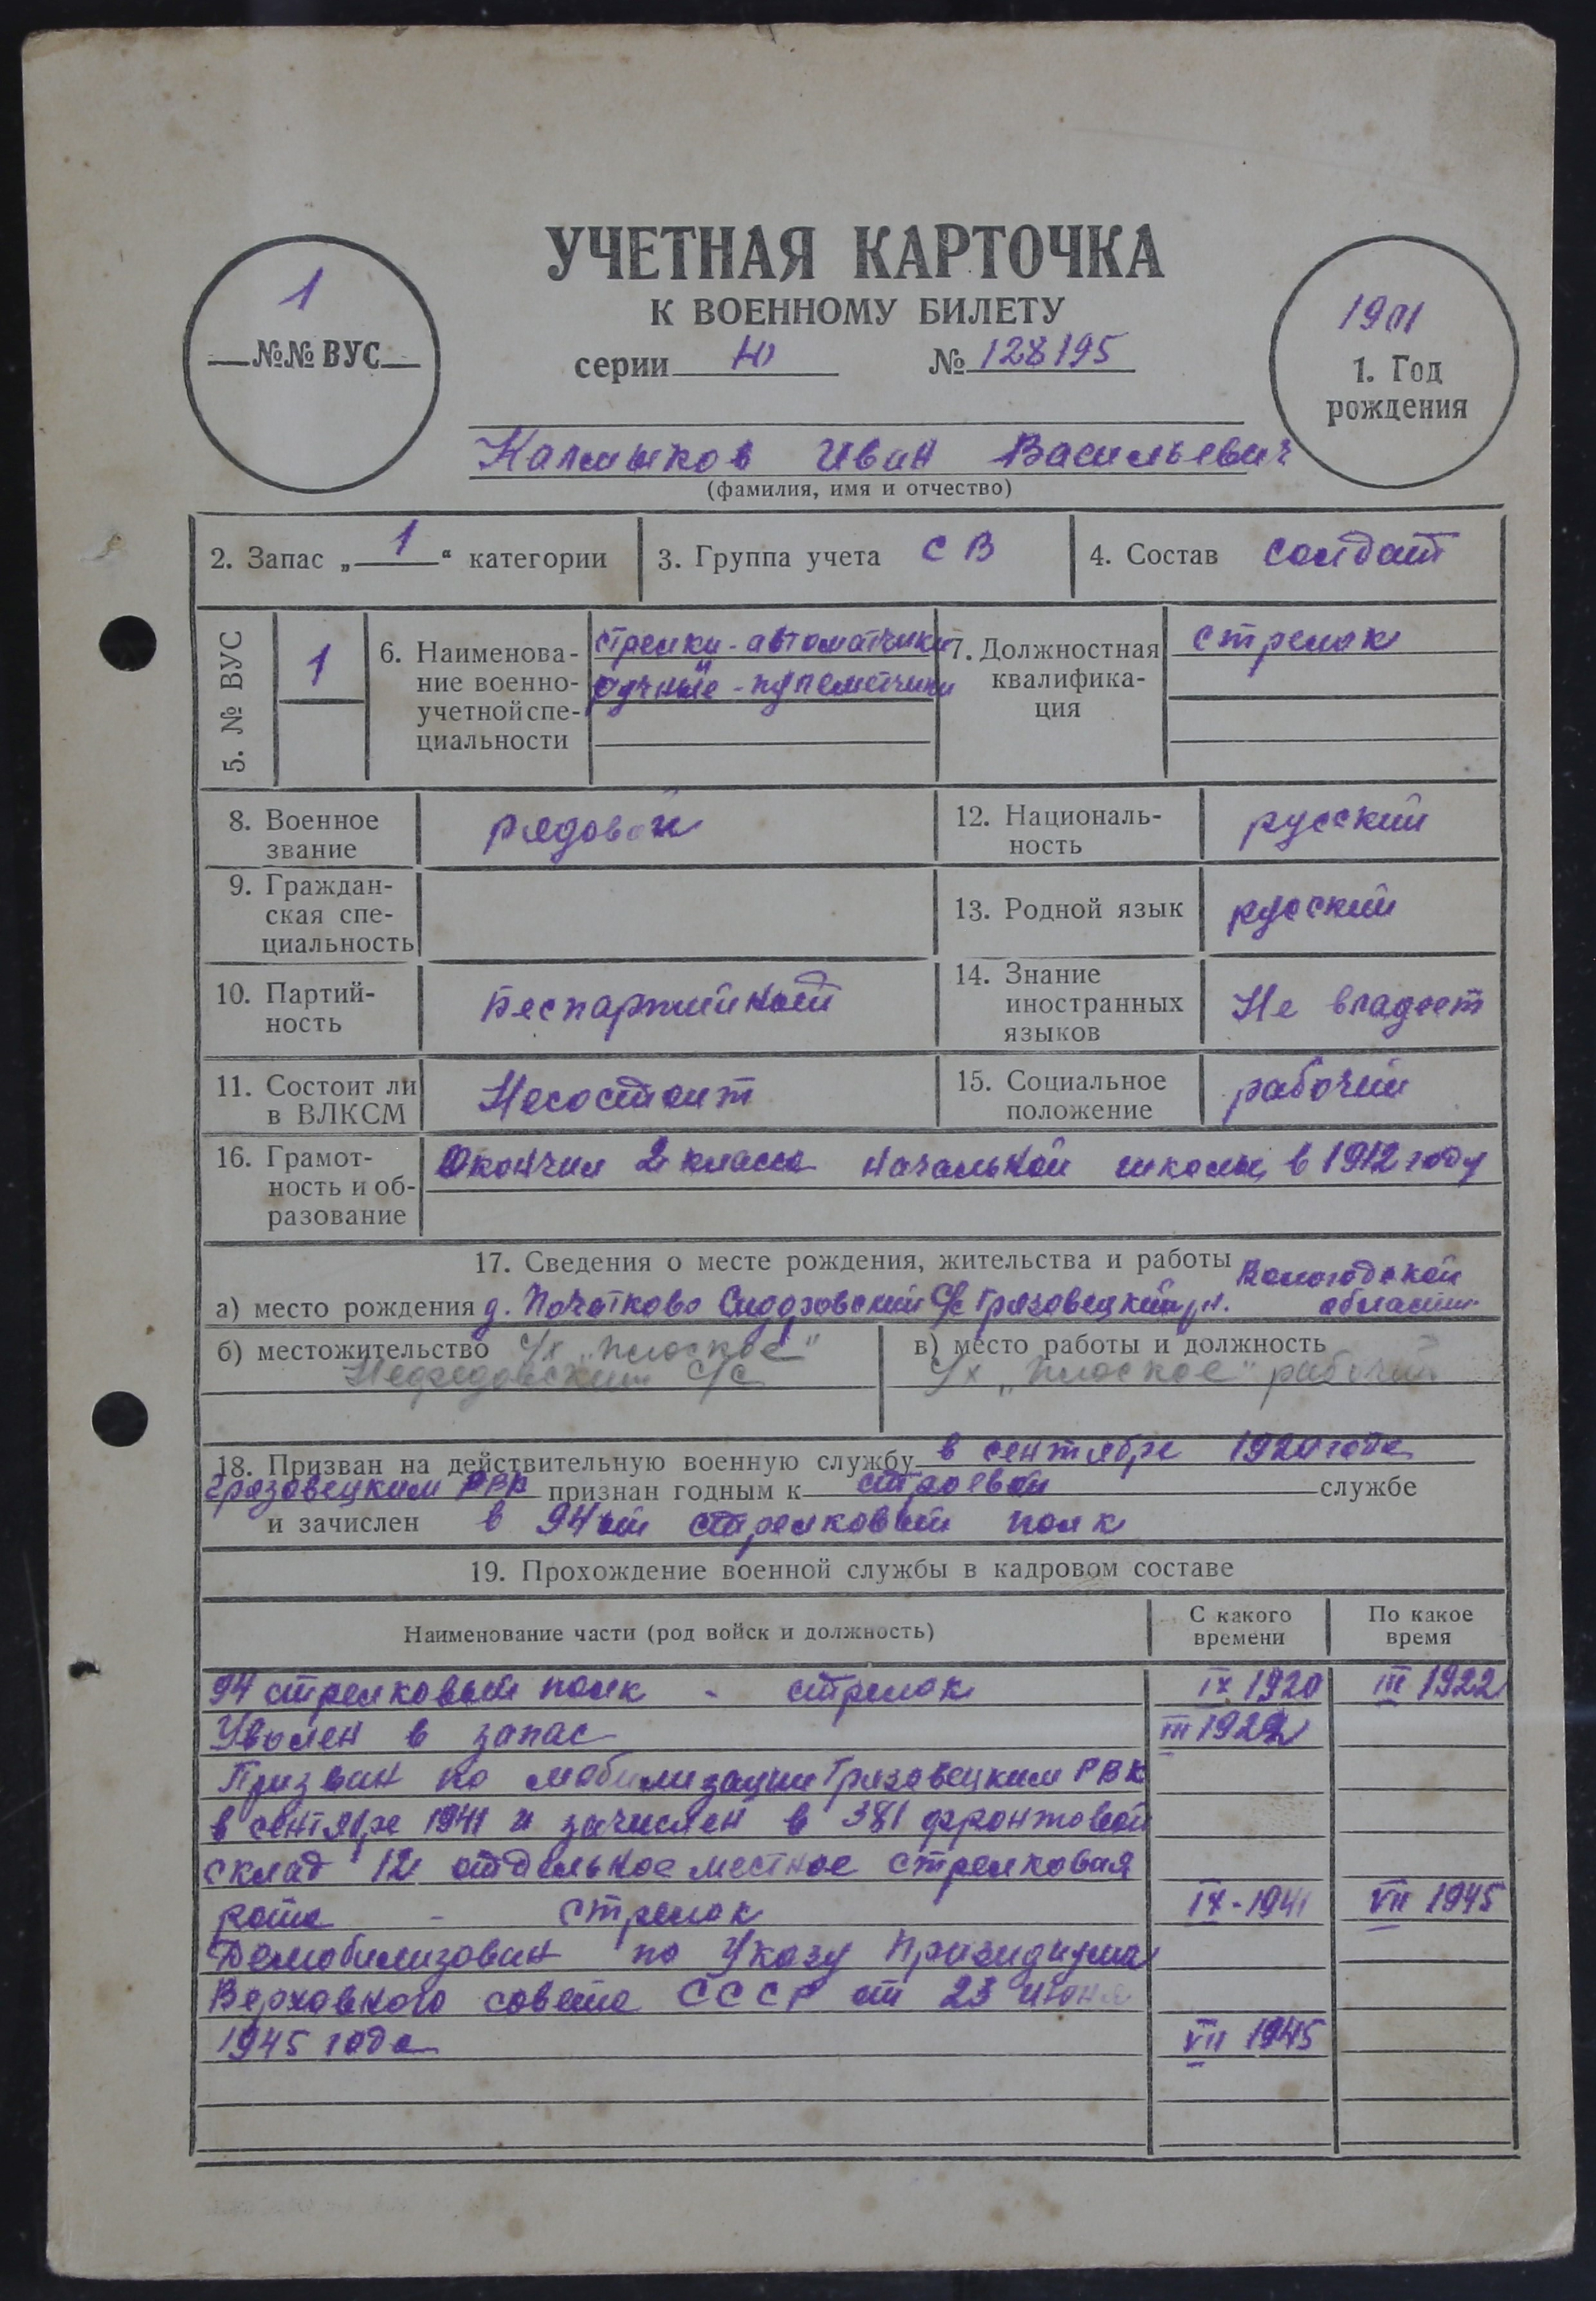 УЧЕТНАЯ КАРТОЧКА
К ВОЕННОМУ БИЛЕТУ
серии Ю № 128195
1
№№ ВУС
1901
1. Год
рождения
Калмыков Иван Васильевич
(фамилия, имя и отчество)
2. Запас „1“ категории
3. Группа учета СВ
4. Состав солдат
5. № ВУС
1
6. Наименова-
ние военно-
учетной спе-
циальности
стрелки-автоматчики
ручные-пулеметчики
7. Должностная
квалифика-
ция
стрелок
8. Военное
звание
рядовой
12. Националь-
ность
русский
9. Граждан-
ская спе-
циальность
13. Родной язык
русский
10. Партий-
ность
Беспартийный
14. Знание
иностранных
языков
Не владеет
11. Состоит ли
в ВЛКСМ
Несостоит
15. Социальное
положение
рабочий
16. Грамот-
ность и об-
разование
Окончил 2 класса начальной школы в 1912 году
17. Сведения о месте рождения, жительства и работы
Вологодской
а) место рождения д. Сидоровский С/с Грязовецкий рн. области
б) местожительство С/х „Плоское"
С/с
в) место работы и должность
С/х „Плоское" рабочий
18. Призван на действительную военную службу в сентябре 1920 года
Грязовецким РВК признан годным к строевой службе
и зачислен в 94ый стрелковый полк
19. Прохождение военной службы в кадровом составе
Наименование части (род войск и должность)
С какого
времени
По какое
время
94 стрелковый полк - стрелок IX 1920 III 1922
Уволен в запас III 1922
Призван по мобилизации Грязовецким РВК
в сентябре 1941 и зачислен в 381 фронтовой
склад 12 отдельное местное стрелковая
рота - стрелок IX-1941 VII 1945
Демобилизован по Указу Призидиума
Верховного совета СССР от 23 июня
1945 года VII 1945